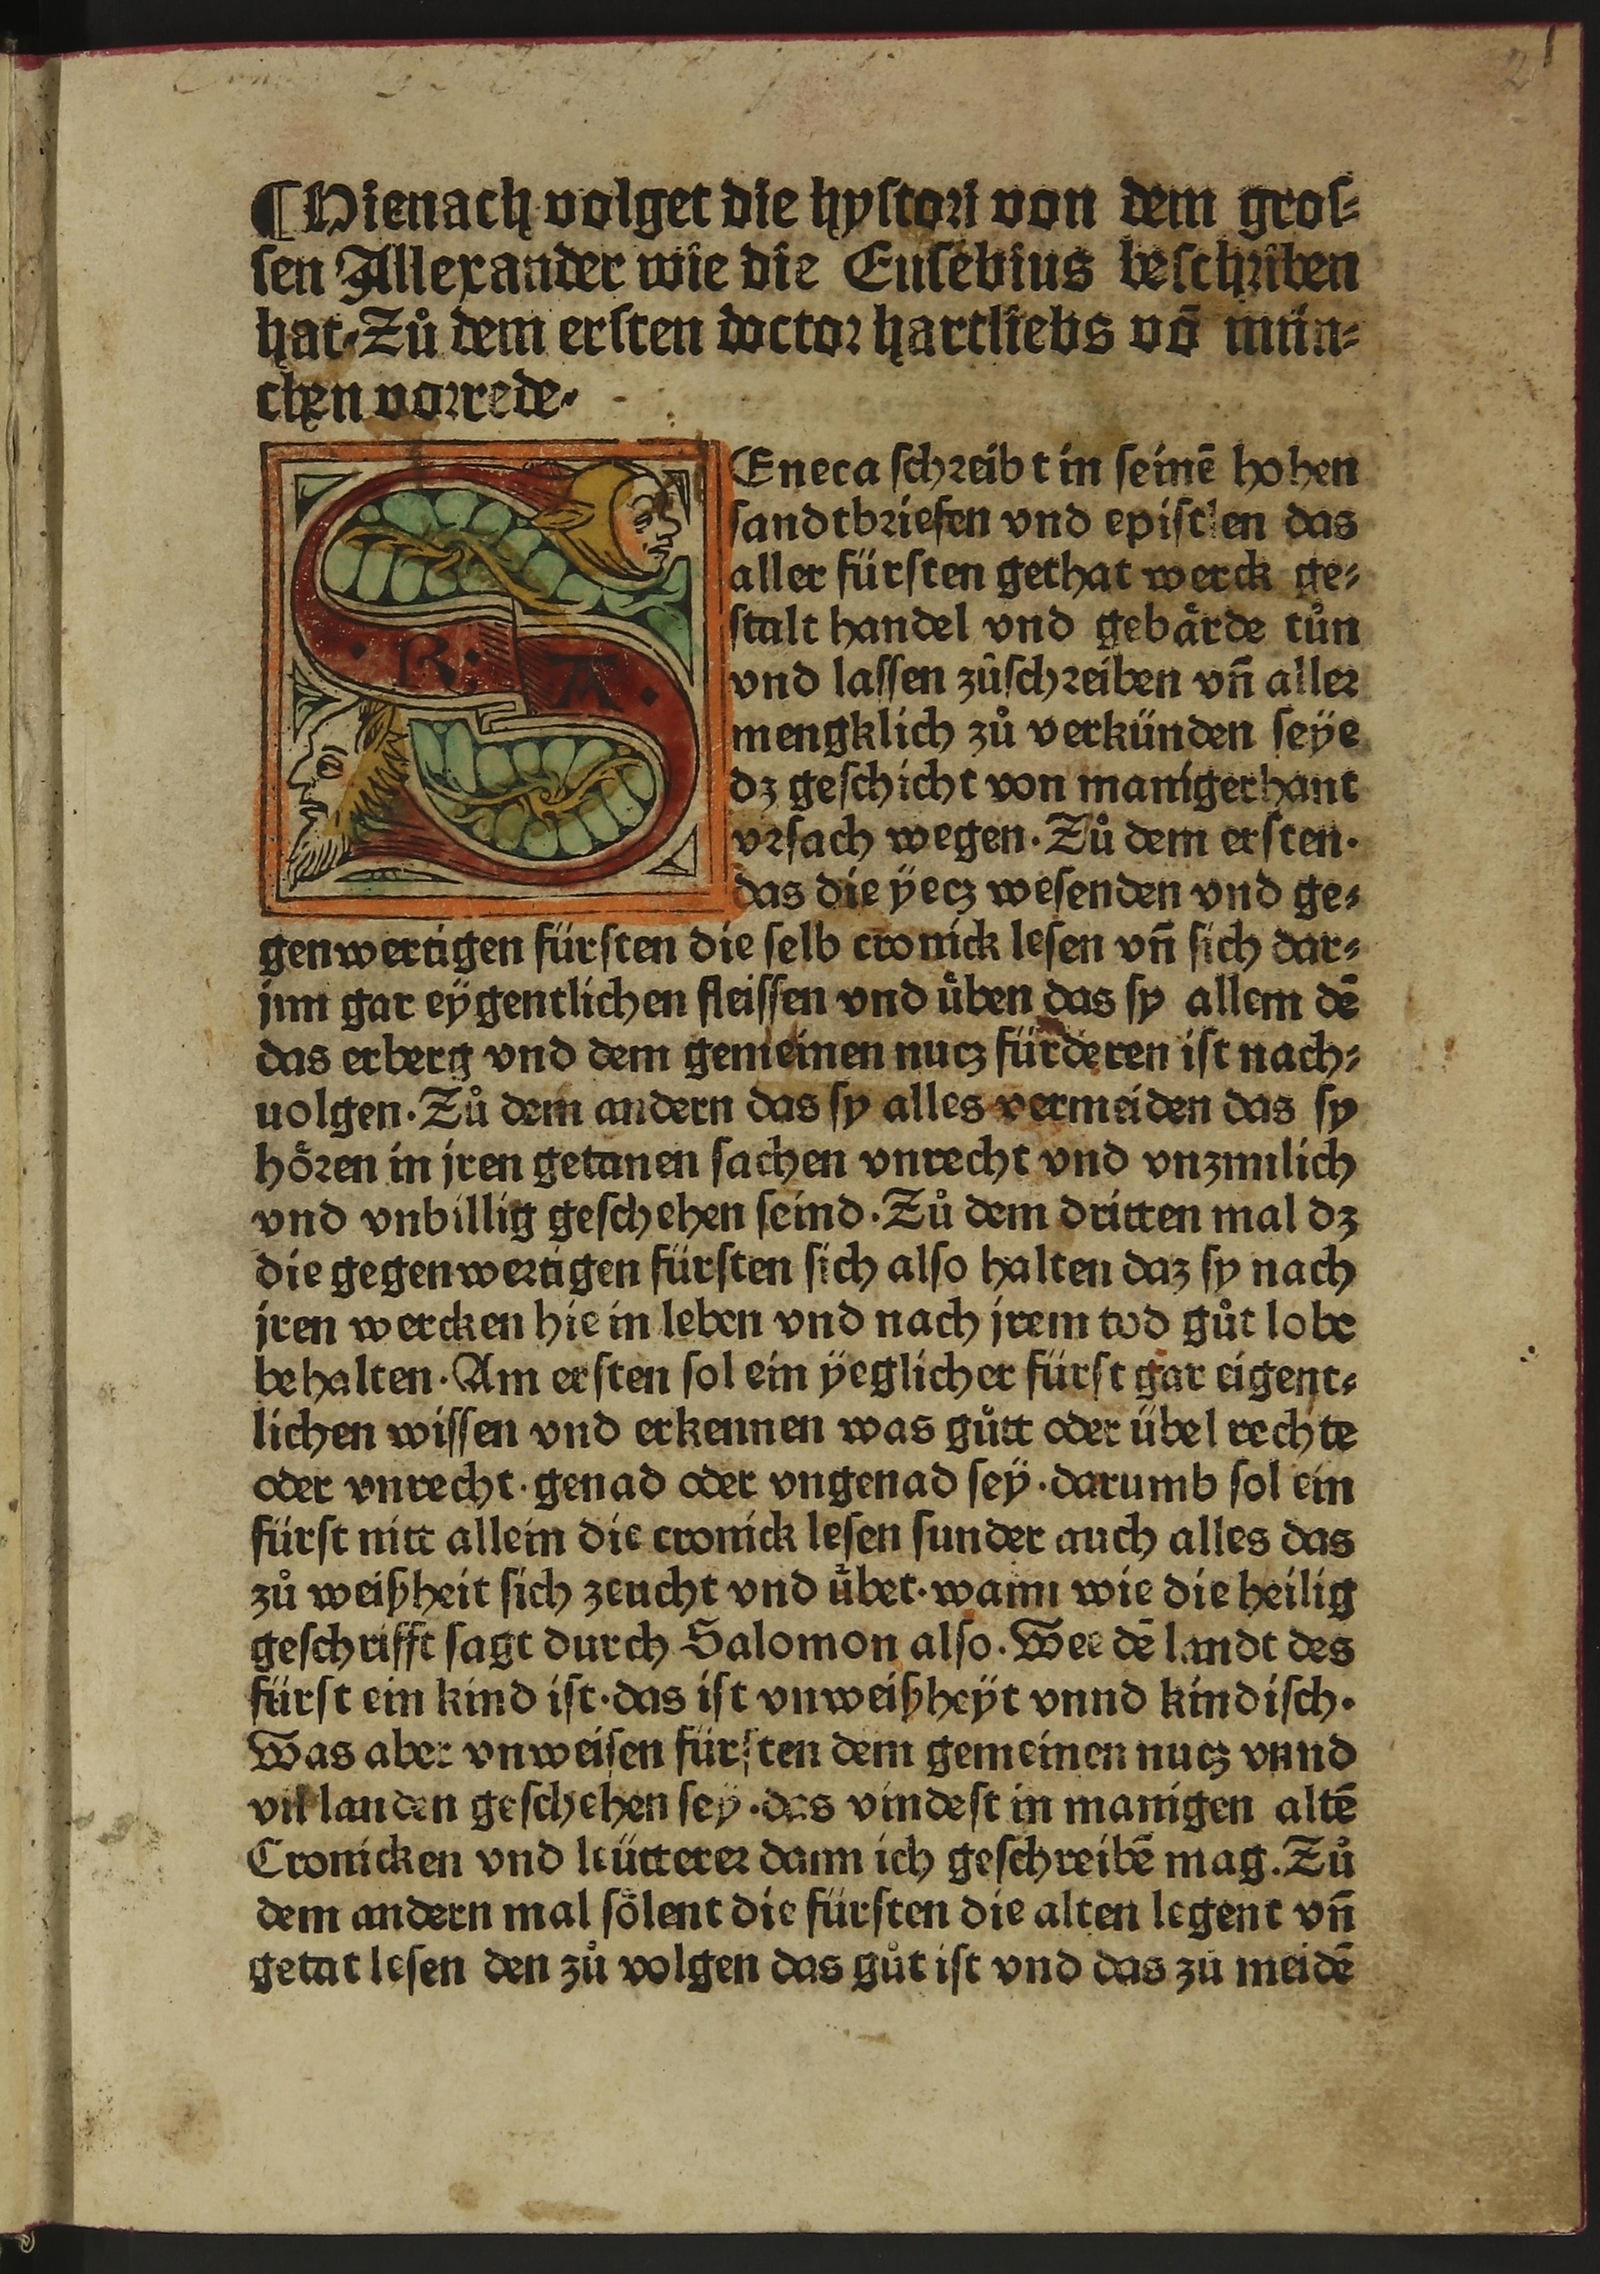 ¶Hienach volget die hystori von dem gros⸗
sen Allexander wie die Eusebius beschriben
hat. Zů dem ersten doctor hartliebs vō mün⸗
chen vorrede.
SEneca schreibt in seinē hohen
sandtbriefen vnd epistlen das
aller fürsten gethat werck ge⸗
stalt handel vnd gebärde tůn
vnd lassen zůschreiben vn̄ aller
mengklich zů verkünden seÿe
dz geschicht von manigerhant
vrsach wegen. Zů dem ersten.
das die ÿecz wesenden vnd ge⸗
genwertigen fürsten die selb cronick lesen vn̄ sich dar⸗
jnn gar eÿgentlichen fleissen vnd ůben das sy allem dē
das erberg vnd dem gemeinen nucz fürderen ist nach⸗
uolgen. Zů dem andern das sy alles vermeiden das sy
hören in jren getanen sachen vnrecht vnd vnzimlich
vnd vnbillig geschehen seind. Zů dem dritten mal dz
die gegenwertigen fürsten sich also halten daz sy nach
jren wercken hie in leben vnd nach jrem tod gůt lobe
behalten. Am ersten sol ein ÿeglicher fürst gar eigent⸗
lichen wissen vnd erkennen was gůtt oder übel rechte
oder vnrecht. genad oder vngenad seÿ. darumb sol ein
fürst nitt allein die cronick lesen sunder auch alles das
zů weißheit sich zeucht vnd ůbet. wann wie die heilig
geschrifft sagt durch Salomon also. Wee dē landt des
fürst ein kind ist. das ist vnweißheÿt vnnd kindisch.
Was aber vnweisen fürsten dem gemeinen nucz vnnd
vil landen geschehen seÿ. des vindest in manigen altē
Cronicken vnd leütterer dann ich geschreibē mag. Zů
dem andern mal sölent die fürsten die alten legent vn̄
getat lesen den zů volgen das gůt ist vnd das zů meidē
R: A.